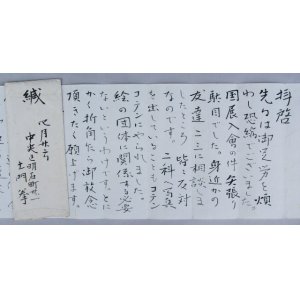 拝啓
先日は御足労を煩
わし恐縮でございました。
国展入會の件矢張り
駄目でした。身近かの
友達二三に相談ま
したところ皆々反対
なのです。二科へ写真
を出していることもコチコチン
にやられました。
絵の団体に関係する必要
ないというわけです。とに
かく折角たら御放念
頂きたく願上げます。
緘
四月廿二日
中央區明石町
土門拳